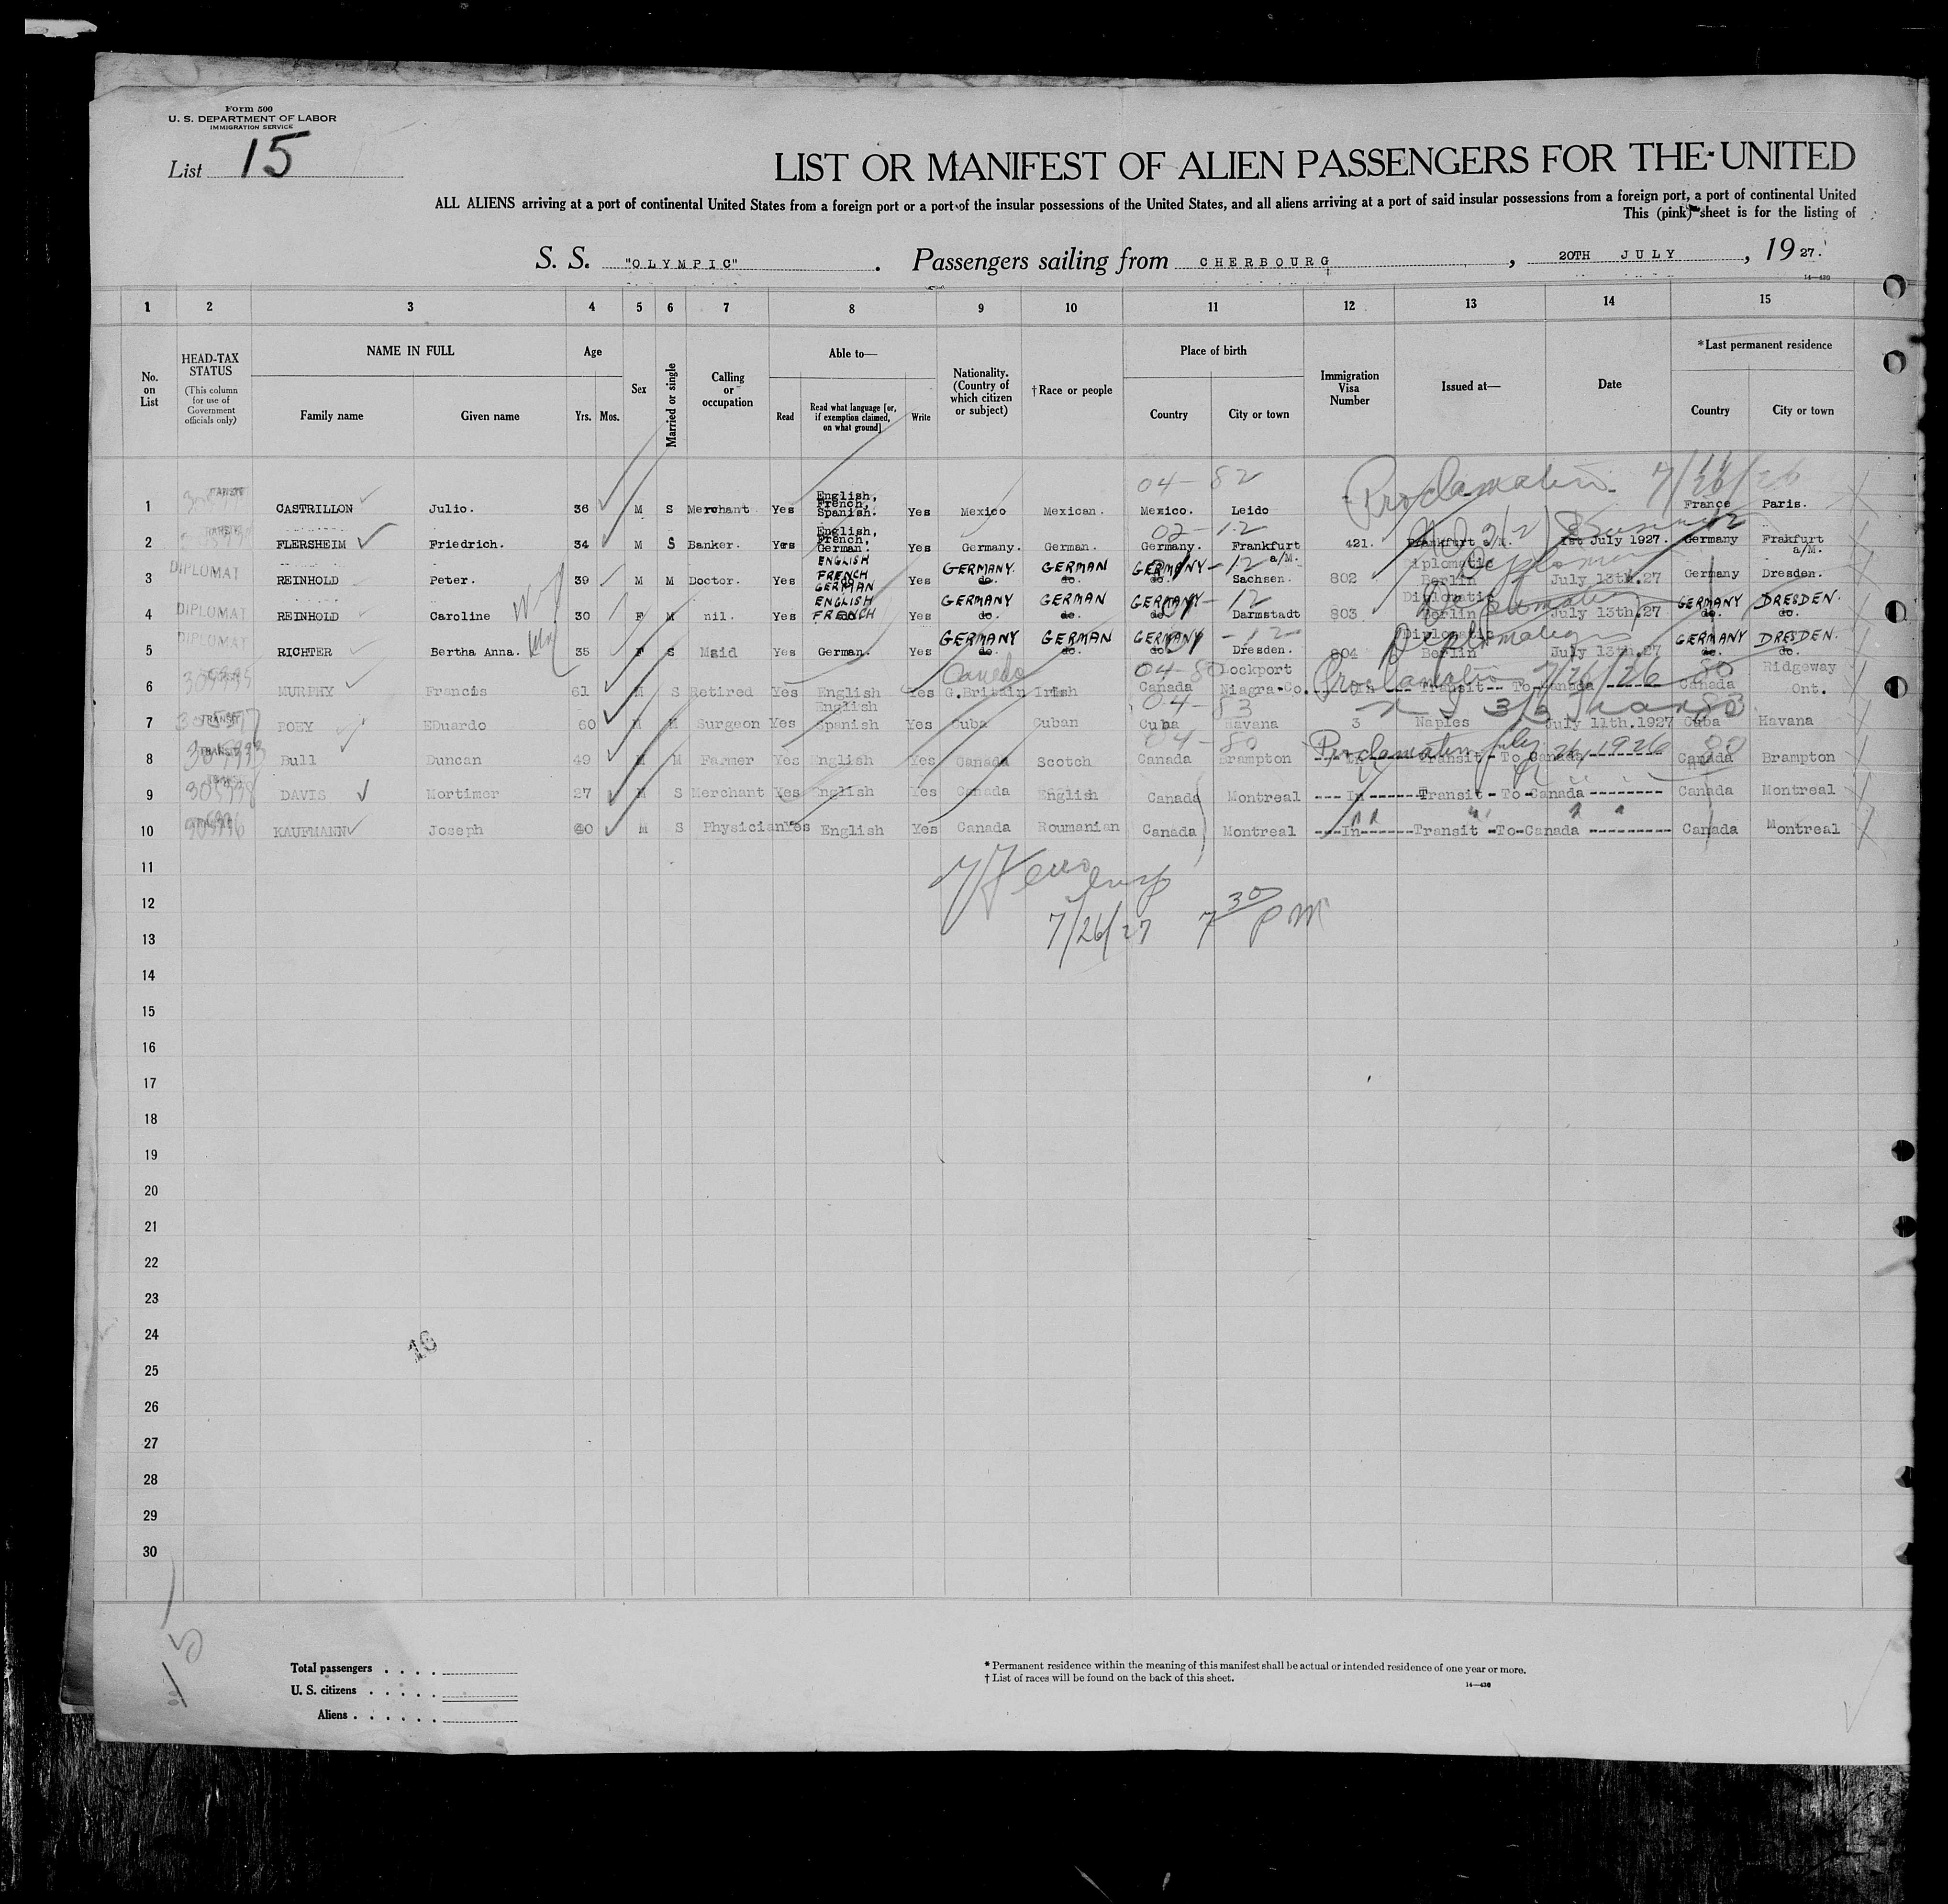 Form 500
U. S. DEPARTMENT OF LABOR
IMMIGRATION SERVICE
List 15
LIST OR MANIFEST OF ALIEN PASSENGERS FOR THE UNITED
ALL ALIENS arriving at a port of continental United States from a foreign port or a port of the insular possessions of the United States, and all aliens arriving at a port of said insular possessions from a foreign port, a port of continental United
This (pink) sheet is for the listing of
S. S. "OLYMPIC" . Passengers sailing from CHERBOURG , 20TH JULY , 1927.
14—430
1 2 3 4 5 6 7 8 9 10 11 12 13 14 15
No. on List
HEAD-TAX STATUS (This column for use of Government officials only)
NAME IN FULL
Family name Given name
Age
Yrs. Mos.
Sex
Married or single
Calling or occupation
Able to—
Read Read what language [or, if exemption claimed, on what ground] Write
Nationality. (Country of which citizen or subject)
† Race or people
Place of birth
Country City or town
Immigration Visa Number
Issued at—
Date
* Last permanent residence
Country City or town
04-82 Proclamation 7/26/26
1 CASTRILLON Julio. 36 M S Merchant Yes English, French, Spanish. Yes Mexico Mexican. Mexico. Leido France Paris.
02-12
2 FLERSHEIM Friedrich. 34 M S Banker. Yes English, French, German. Yes Germany. German. Germany. Frankfurt a/M. 421. Frankfurt a/M. 1st July 1927. Germany Frakfurt a/M.
3 DIPLOMAT REINHOLD Peter. 39 M M Doctor. Yes ENGLISH FRENCH GERMAN Yes GERMANY do. GERMAN do. GERMANY do. Sachsen. 802 Diplomatic Berlin July 13th.27 Germany Dresden.
4 DIPLOMAT REINHOLD Caroline 30 F M nil. Yes ENGLISH FRENCH do Yes GERMANY do. GERMAN do. GERMANY do. Darmstadt 803 Diplomatic Berlin July 13th.27 GERMANY do. DRESDEN. do.
5 DIPLOMAT RICHTER Bertha Anna. 35 F S Maid Yes German. Yes GERMANY do. GERMAN do. GERMANY do. Dresden. 804 Diplomatic Berlin July 13th.27 GERMANY do. DRESDEN. do.
Canada 04-80 Proclamation 7/26/26 80
6 MURPHY Francis 61 M S Retired Yes English Yes G.Britain Irish Canada Lockport Niagra-Co. In --- Transit-- To-Canada ----- Canada Ridgeway Ont.
04-83
7 TRANSIT POEY EDuardo 60 M M Surgeon Yes English Spanish Yes Cuba Cuban Cuba Havana 3 Naples July 11th.1927 Cuba Havana
04-80 Proclamation July 26, 1926 80
8 Bull Duncan 49 M M Farmer Yes English Yes Canada Scotch Canada Brampton ---In----Transit-To-Canada-------- Canada Brampton
9 DAVIS Mortimer 27 M S Merchant Yes English Yes Canada English Canada Montreal ---In-----Transit-To-Canada -------- Canada Montreal
10 KAUFMANN Joseph 40 M S Physician Yes English Yes Canada Roumanian Canada Montreal ---In------Transit -To-Canada --------- Canada Montreal
11
12
7/26/27 7 30 PM
13
14
15
16
17
18
19
20
21
22
23
24
16
25
26
27
28
29
30
15
Total passengers . . . .
U. S. citizens . . . . .
Aliens . . . . . .
* Permanent residence within the meaning of this manifest shall be actual or intended residence of one year or more.
† List of races will be found on the back of this sheet.
14—430